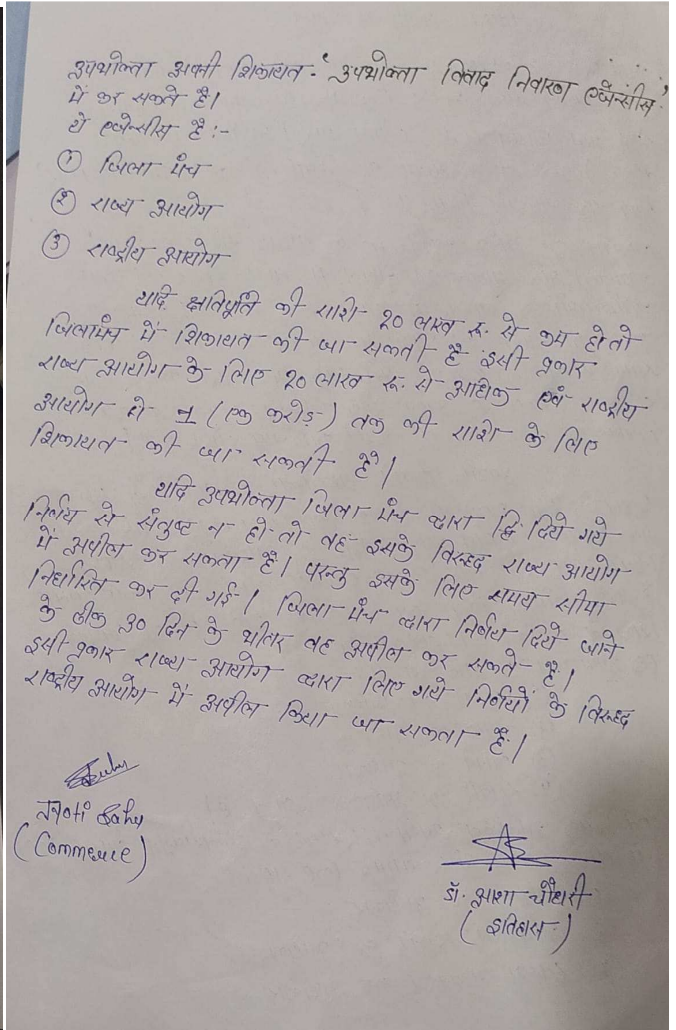 उपभोक्ता अपनी शिकायत - 'उपभोक्ता विवाद निवारण एजेन्सीस'
में कर सकते है।
ये एजेन्सीस है :-
① जिला मंच
② राज्य आयोग
③ राष्ट्रीय आयोग
यदि क्षतिपूर्ति की राशि 20 लाख रू. से कम हो तो
जिलामंच में शिकायत की जा सकती है इसी प्रकार
राज्य आयोग के लिए 20 लाख रू. से अधिक एवं राष्ट्रीय
आयोग हो 1 (एक करोड़) तक की राशि के लिए
शिकायत की जा सकती है।
यदि उपभोक्ता जिला मंच द्वारा दिये गये
निर्णय से संतुष्ट न हो तो वह इसके विरूध्द राज्य आयोग
में अपील कर सकता है। परन्तु इसके लिए समय सीमा
निर्धारित कर दी गई। जिला मंच द्वारा निर्णय दिये जाने
के ठीक 30 दिन के भीतर वह अपील कर सकते है।
इसी प्रकार राज्य आयोग द्वारा लिए गये निर्णयों के विरूध्द
राष्ट्रीय आयोग में अपील किया जा सकता है।
Jyoti Sahu
(Commerce)
डॉ. आशा चौधरी
(इतिहास)